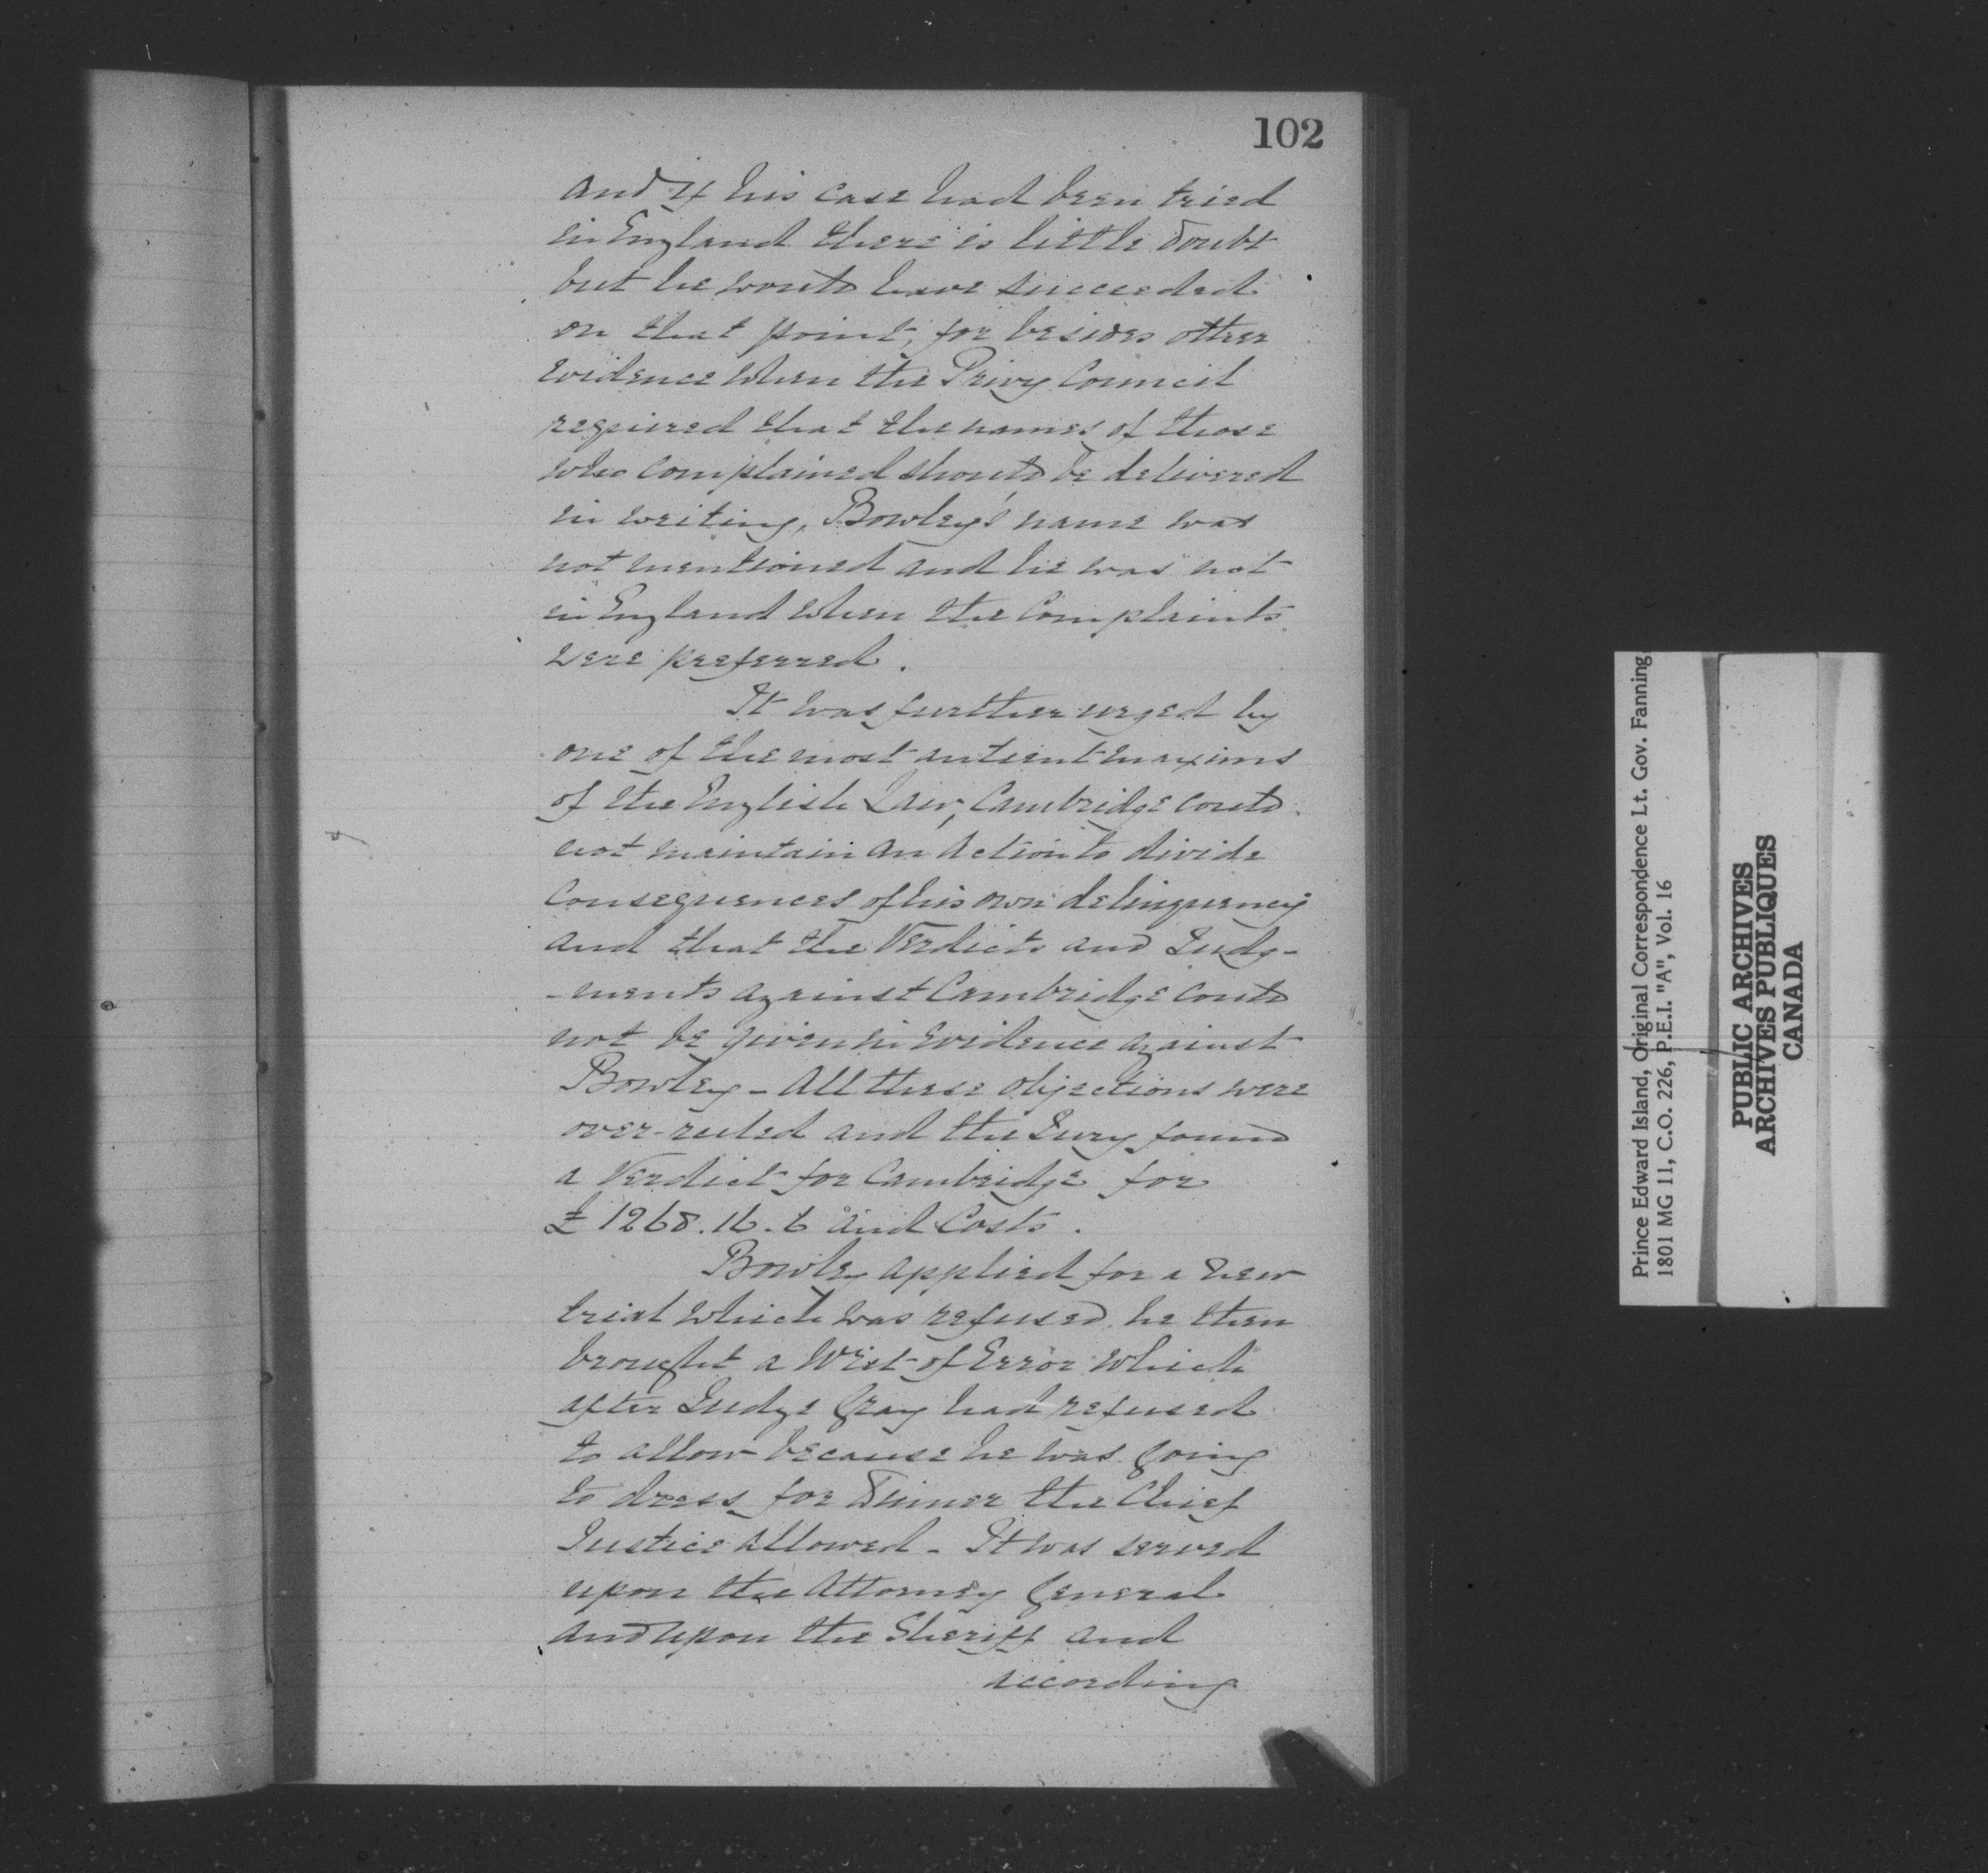 102
and if his case had been tried
in England there is little doubt
but he would have succeeded
on that point, for besides other
evidence when the Privy Council
required that the names of those
who complained should be delivered
in writing, Bowley's name was
not mentioned and he was not
in England when the Complaints
were preferred.
It was further urged by
one of the most antient maxims
of the English Law, Cambridge could
not maintain an Action to divide
Consequences of his own delinquency
and that the Verdicts and Judg-
-ments against Cambridge could
not be given in evidence against
Bowley - All these objections were
over-ruled and the Jury found
a Verdict for Cambridge for
£1268.16.6 and Costs.
Bowley applied for a new
trial which was refused he then
brought a Writ of Error which
after Judge Gray had refused
to allow because he was going
to dress for Dinner the Chief
Justice allowed - It was served
upon the Attorney General
and upon the Sheriff and
according
Prince Edward Island, Original Correspondence Lt. Gov. Fanning
1801 MG 11, C.O. 226, P.E.I. "A", Vol. 16
PUBLIC ARCHIVES
ARCHIVES PUBLIQUES
CANADA